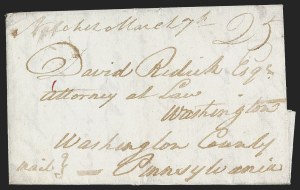 Natchez March 7th 25
David Redick Esqr
Attorney at Law
Washington
Washington County
mail } Pennsylvania